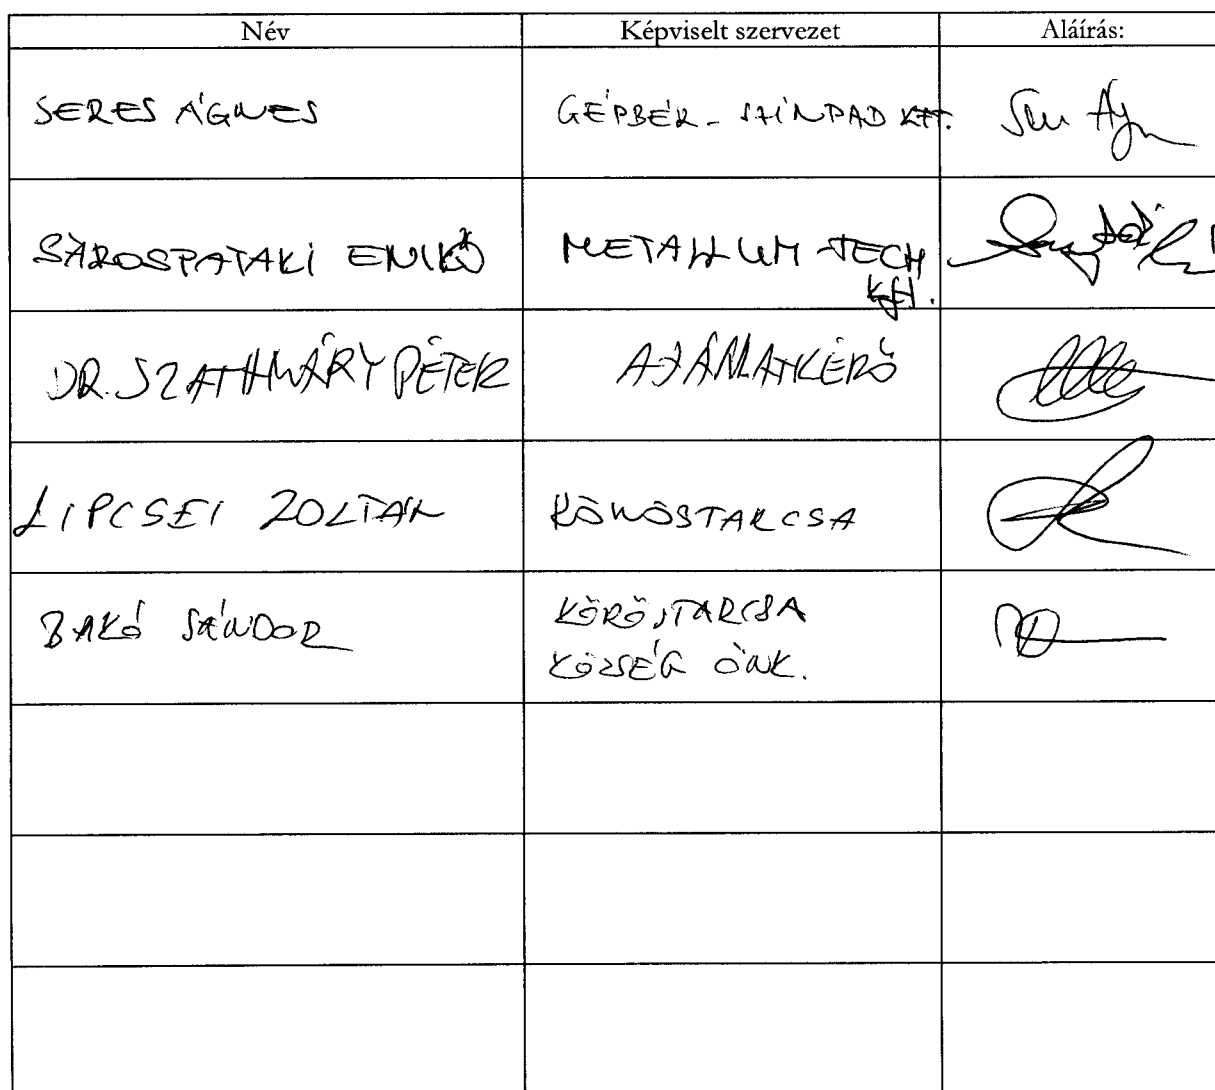 Név Képviselt szervezet Aláírás:
SERES ÁGNES GÉPBÉR - SZÍNPAD KFT.
SÁROSPATAKI ENIKŐ METALLUM-TECH
Kft.
DR. SZATHMÁRY PÉTER AJÁNLATKÉRŐ
LIPCSEI ZOLTÁN KÖRÖSTARCSA
BAKÓ SÁNDOR KÖRÖSTARCSA
KÖZSÉG ÖNK.